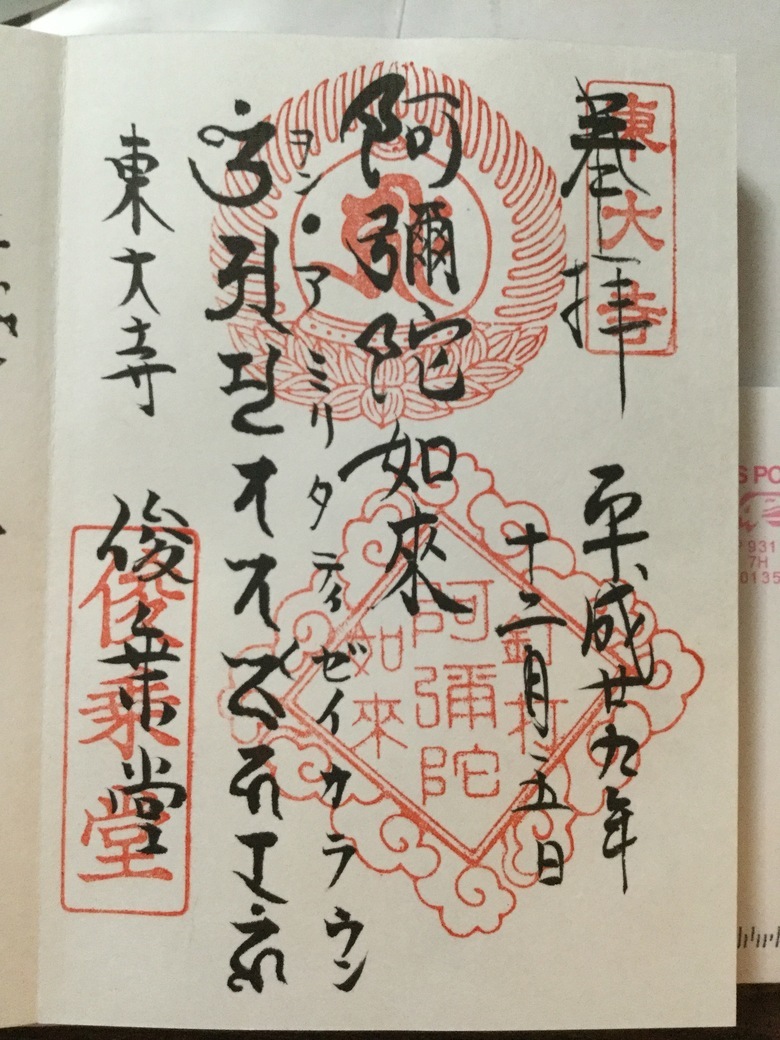 東大寺
奉拝
平成廿九年
十二月二五日
阿彌陀如來
ヲン・アミリタテイゼイカラウン
東大寺
俊乗堂
釘打
阿彌陀
如來
俊乗堂